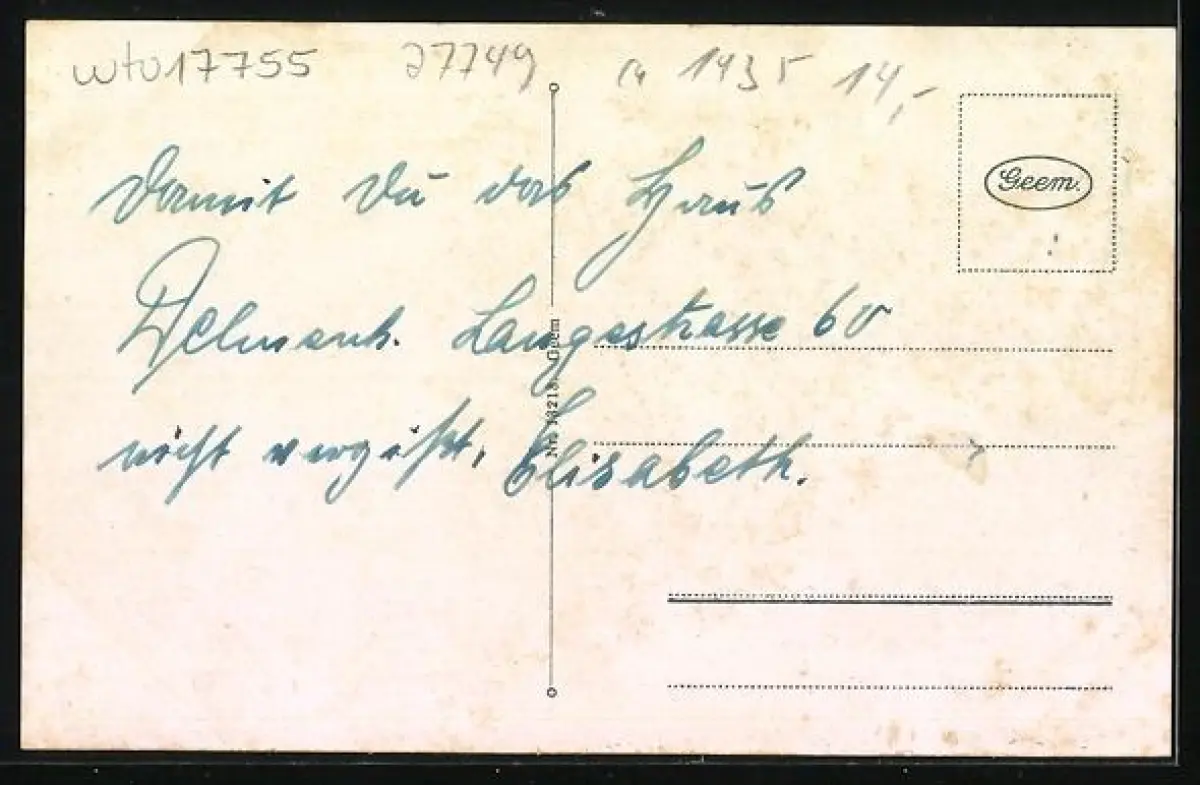 wtv17755 27749 ca 1935 14,-
Geem.
Damit Du das Haus
Delmenh. Langestrasse 60
nicht vergißt, Elisabeth.
Nr. 13213 Geem